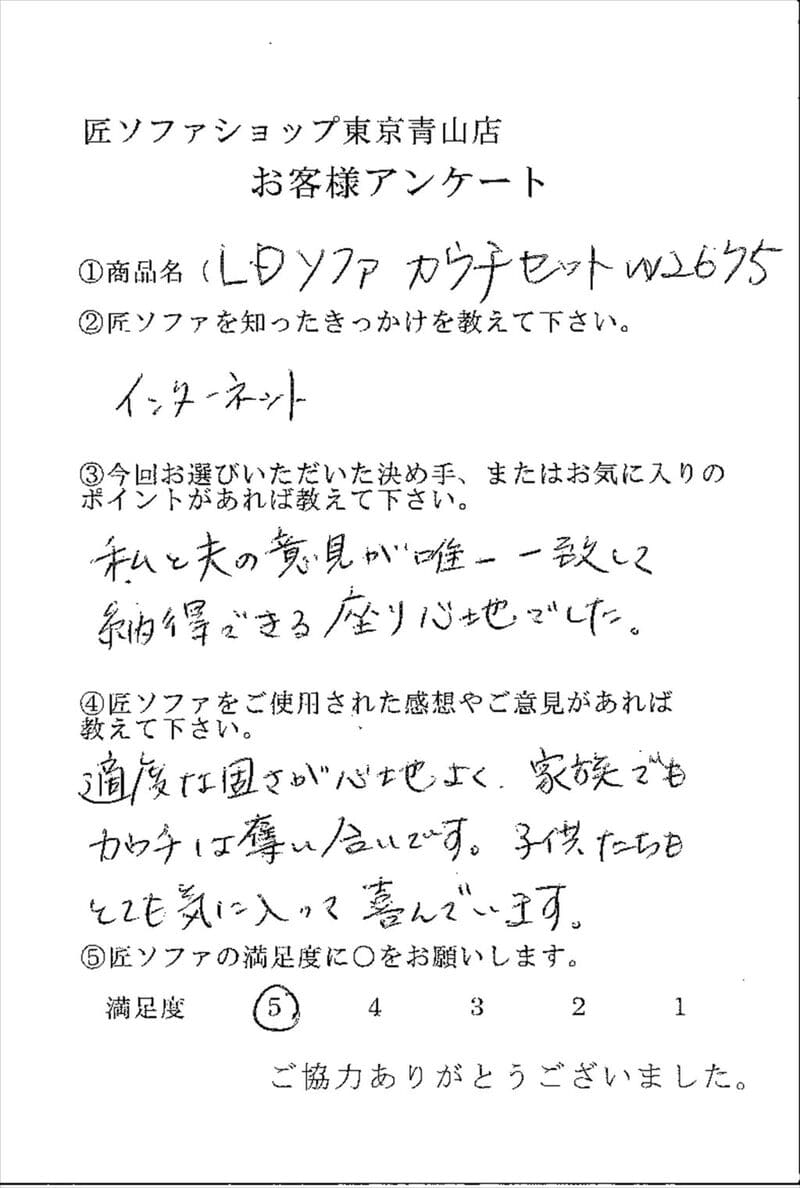 匠ソファショップ東京青山店
お客様アンケート
①商品名（LDソファ カウチセット W2675
②匠ソファを知ったきっかけを教えて下さい。
インターネット
③今回お選びいただいた決め手、またはお気に入りの
ポイントがあれば教えて下さい。
私と夫の意見が唯一一致して
納得できる座り心地でした。
④匠ソファをご使用された感想やご意見があれば
教えて下さい。
適度な固さが心地よく、家族でも
カウチは奪い合いです。子供たちも
とても気に入って喜んでいます。
⑤匠ソファの満足度に○をお願いします。
満足度 5 4 3 2 1
ご協力ありがとうございました。